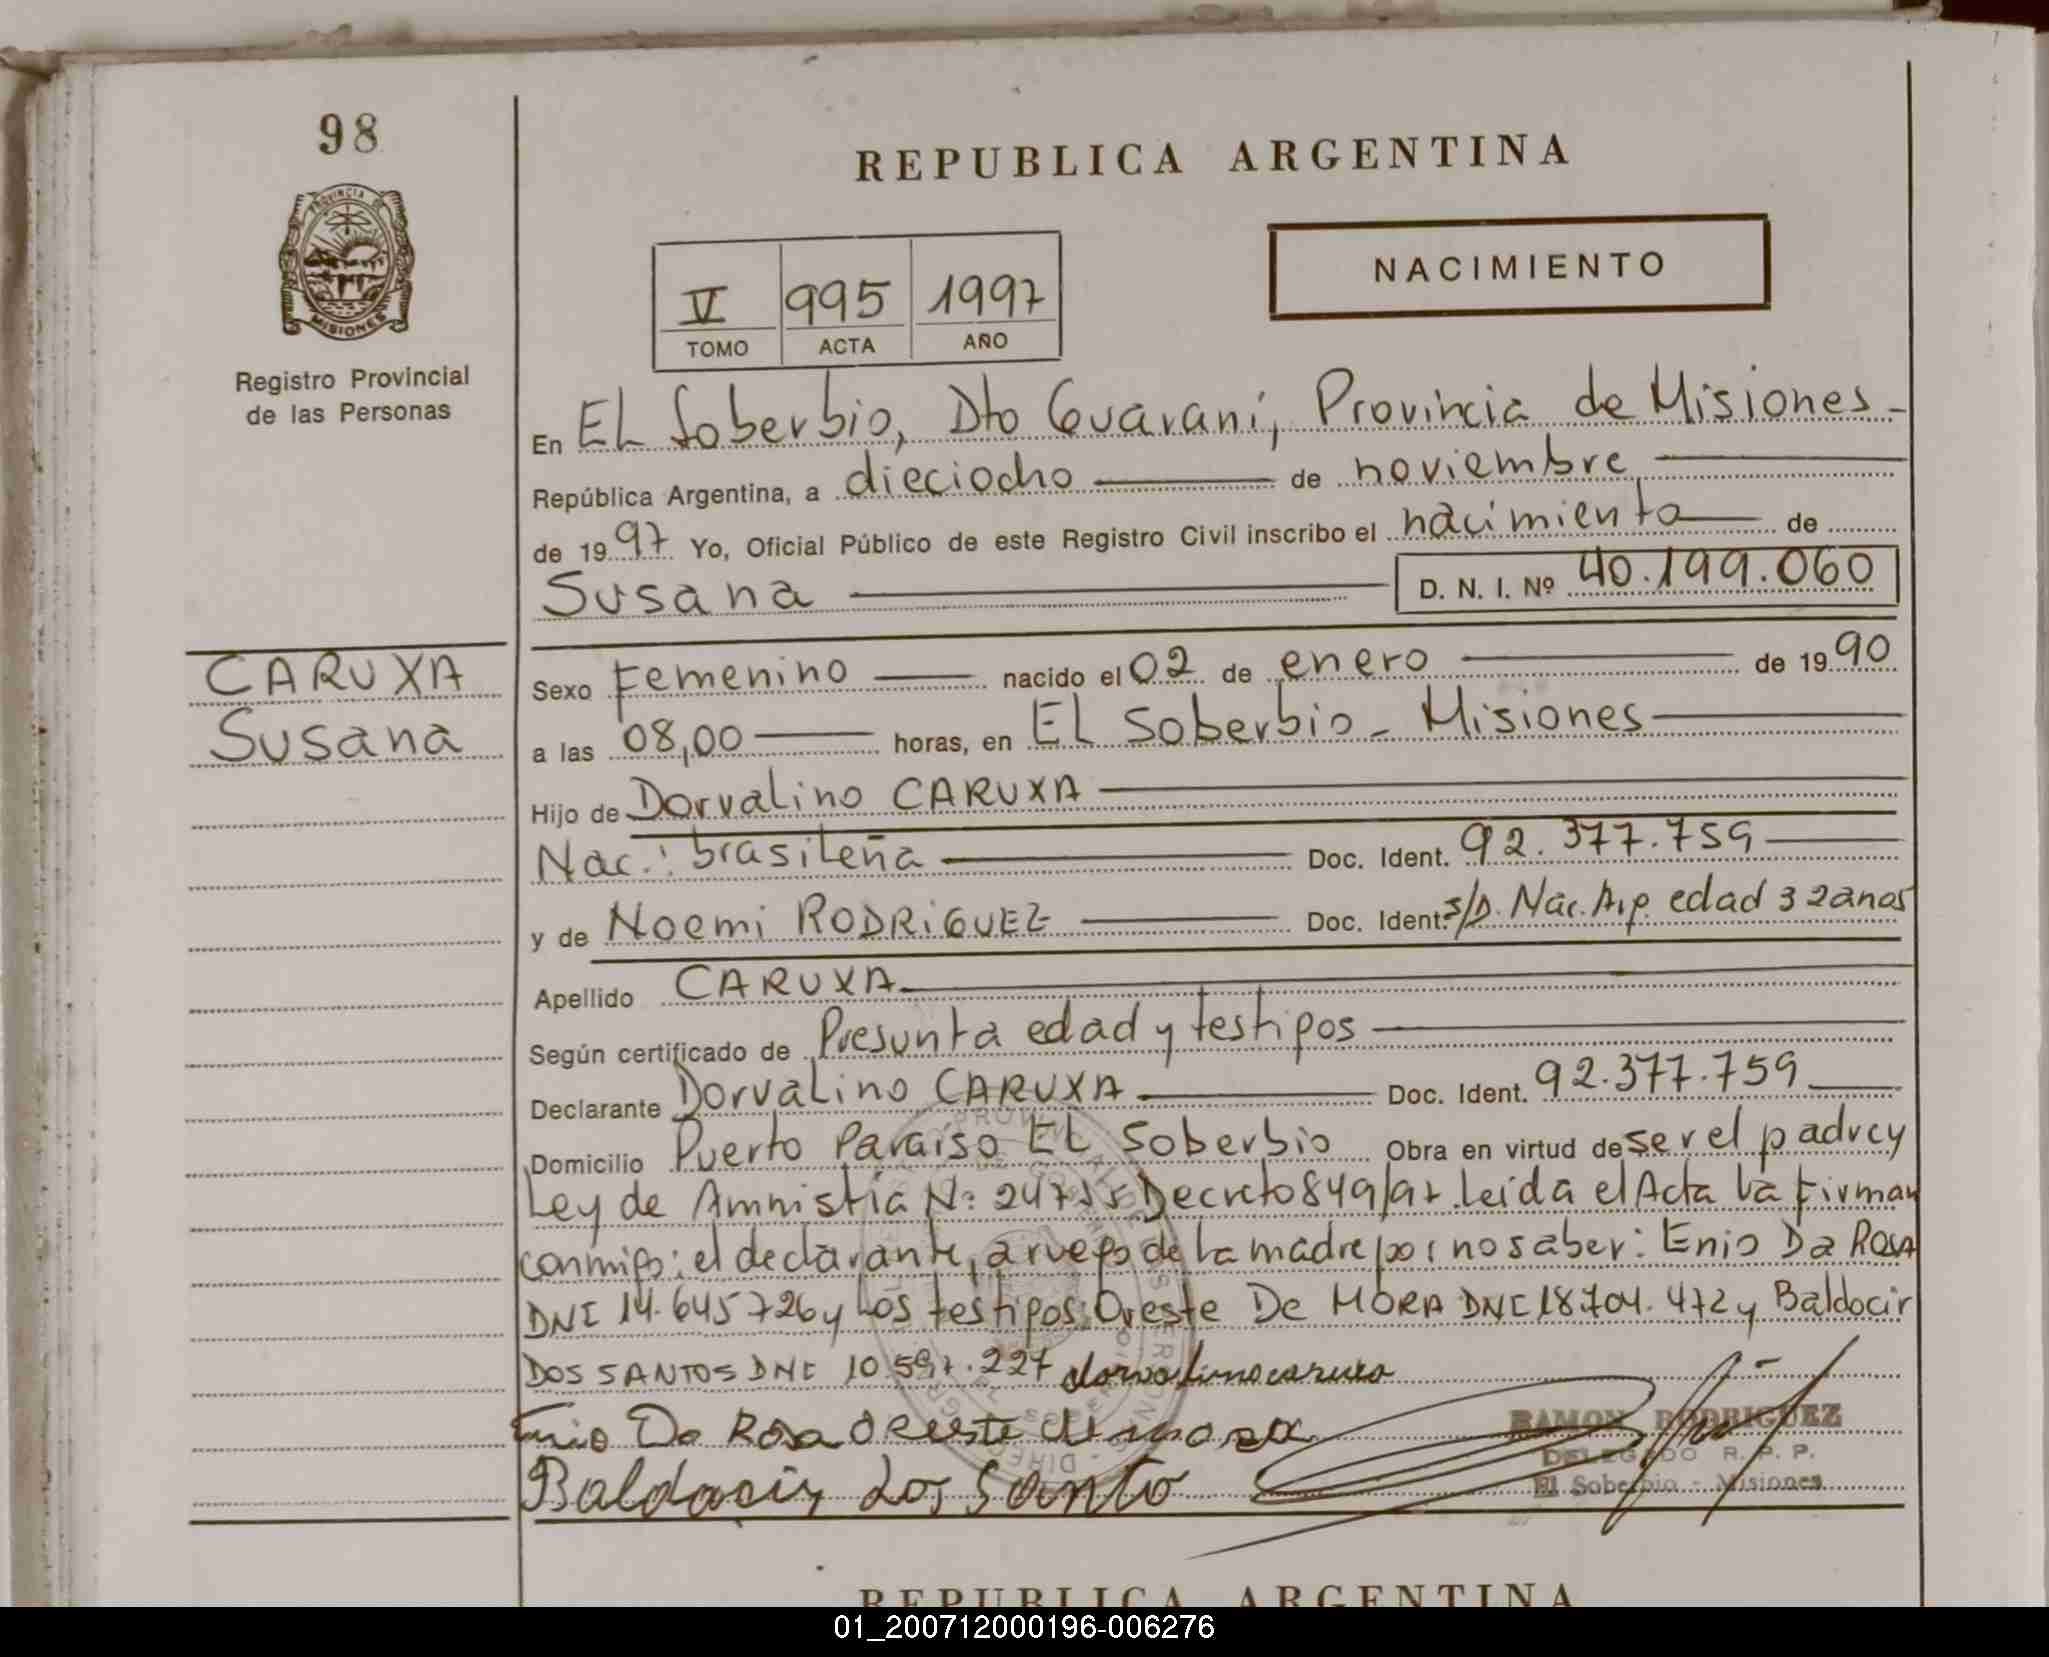 98
REPUBLICA ARGENTINA
PROVINCIA DE
MISIONES
NACIMIENTO
V 995 1997
TOMO ACTA AÑO
Registro Provincial
de las Personas
En EL Soberbio, Dto Guaraní, Provincia de Misiones-
República Argentina, a dieciocho de noviembre
de 1997 Yo, Oficial Público de este Registro Civil inscribo el nacimiento de
Susana D. N. I. Nº 40.199.060
CARUXA
Susana
Sexo Femenino nacido el 02 de enero de 1990
a las 08,00 horas, en EL Soberbio - Misiones
Hijo de Dorvalino CARUXA
Nac.: brasileña Doc. Ident. 92.377.759
y de Noemi RODRIGUEZ Doc. Ident. s/D. Nac. Arg. edad 32 anos
Apellido CARUXA
Según certificado de Presunta edad y testigos
Declarante Dorvalino CARUXA Doc. Ident. 92.377.759
Domicilio Puerto Paraiso EL Soberbio Obra en virtud de ser el padre y
Ley de Amnistía Nº 24755 Decreto 849/97. Leída el Acta la firman
conmigo: el declarante, a ruego de la madre por no saber: Enio Da ROSA
DNI 14.645726 y los testigos: Oreste De MORA DNI 18.704.472 y Baldocir
DOS SANTOS DNI 10.597.227 dorvalino caruxa
Enio Da Rosa Oreste de mora
Baldocir dos Santo
RAMON RODRIGUEZ
DELEGADO R. P. P.
El Soberbio - Misiones
REPUBLICA ARGENTINA
01_200712000196-006276